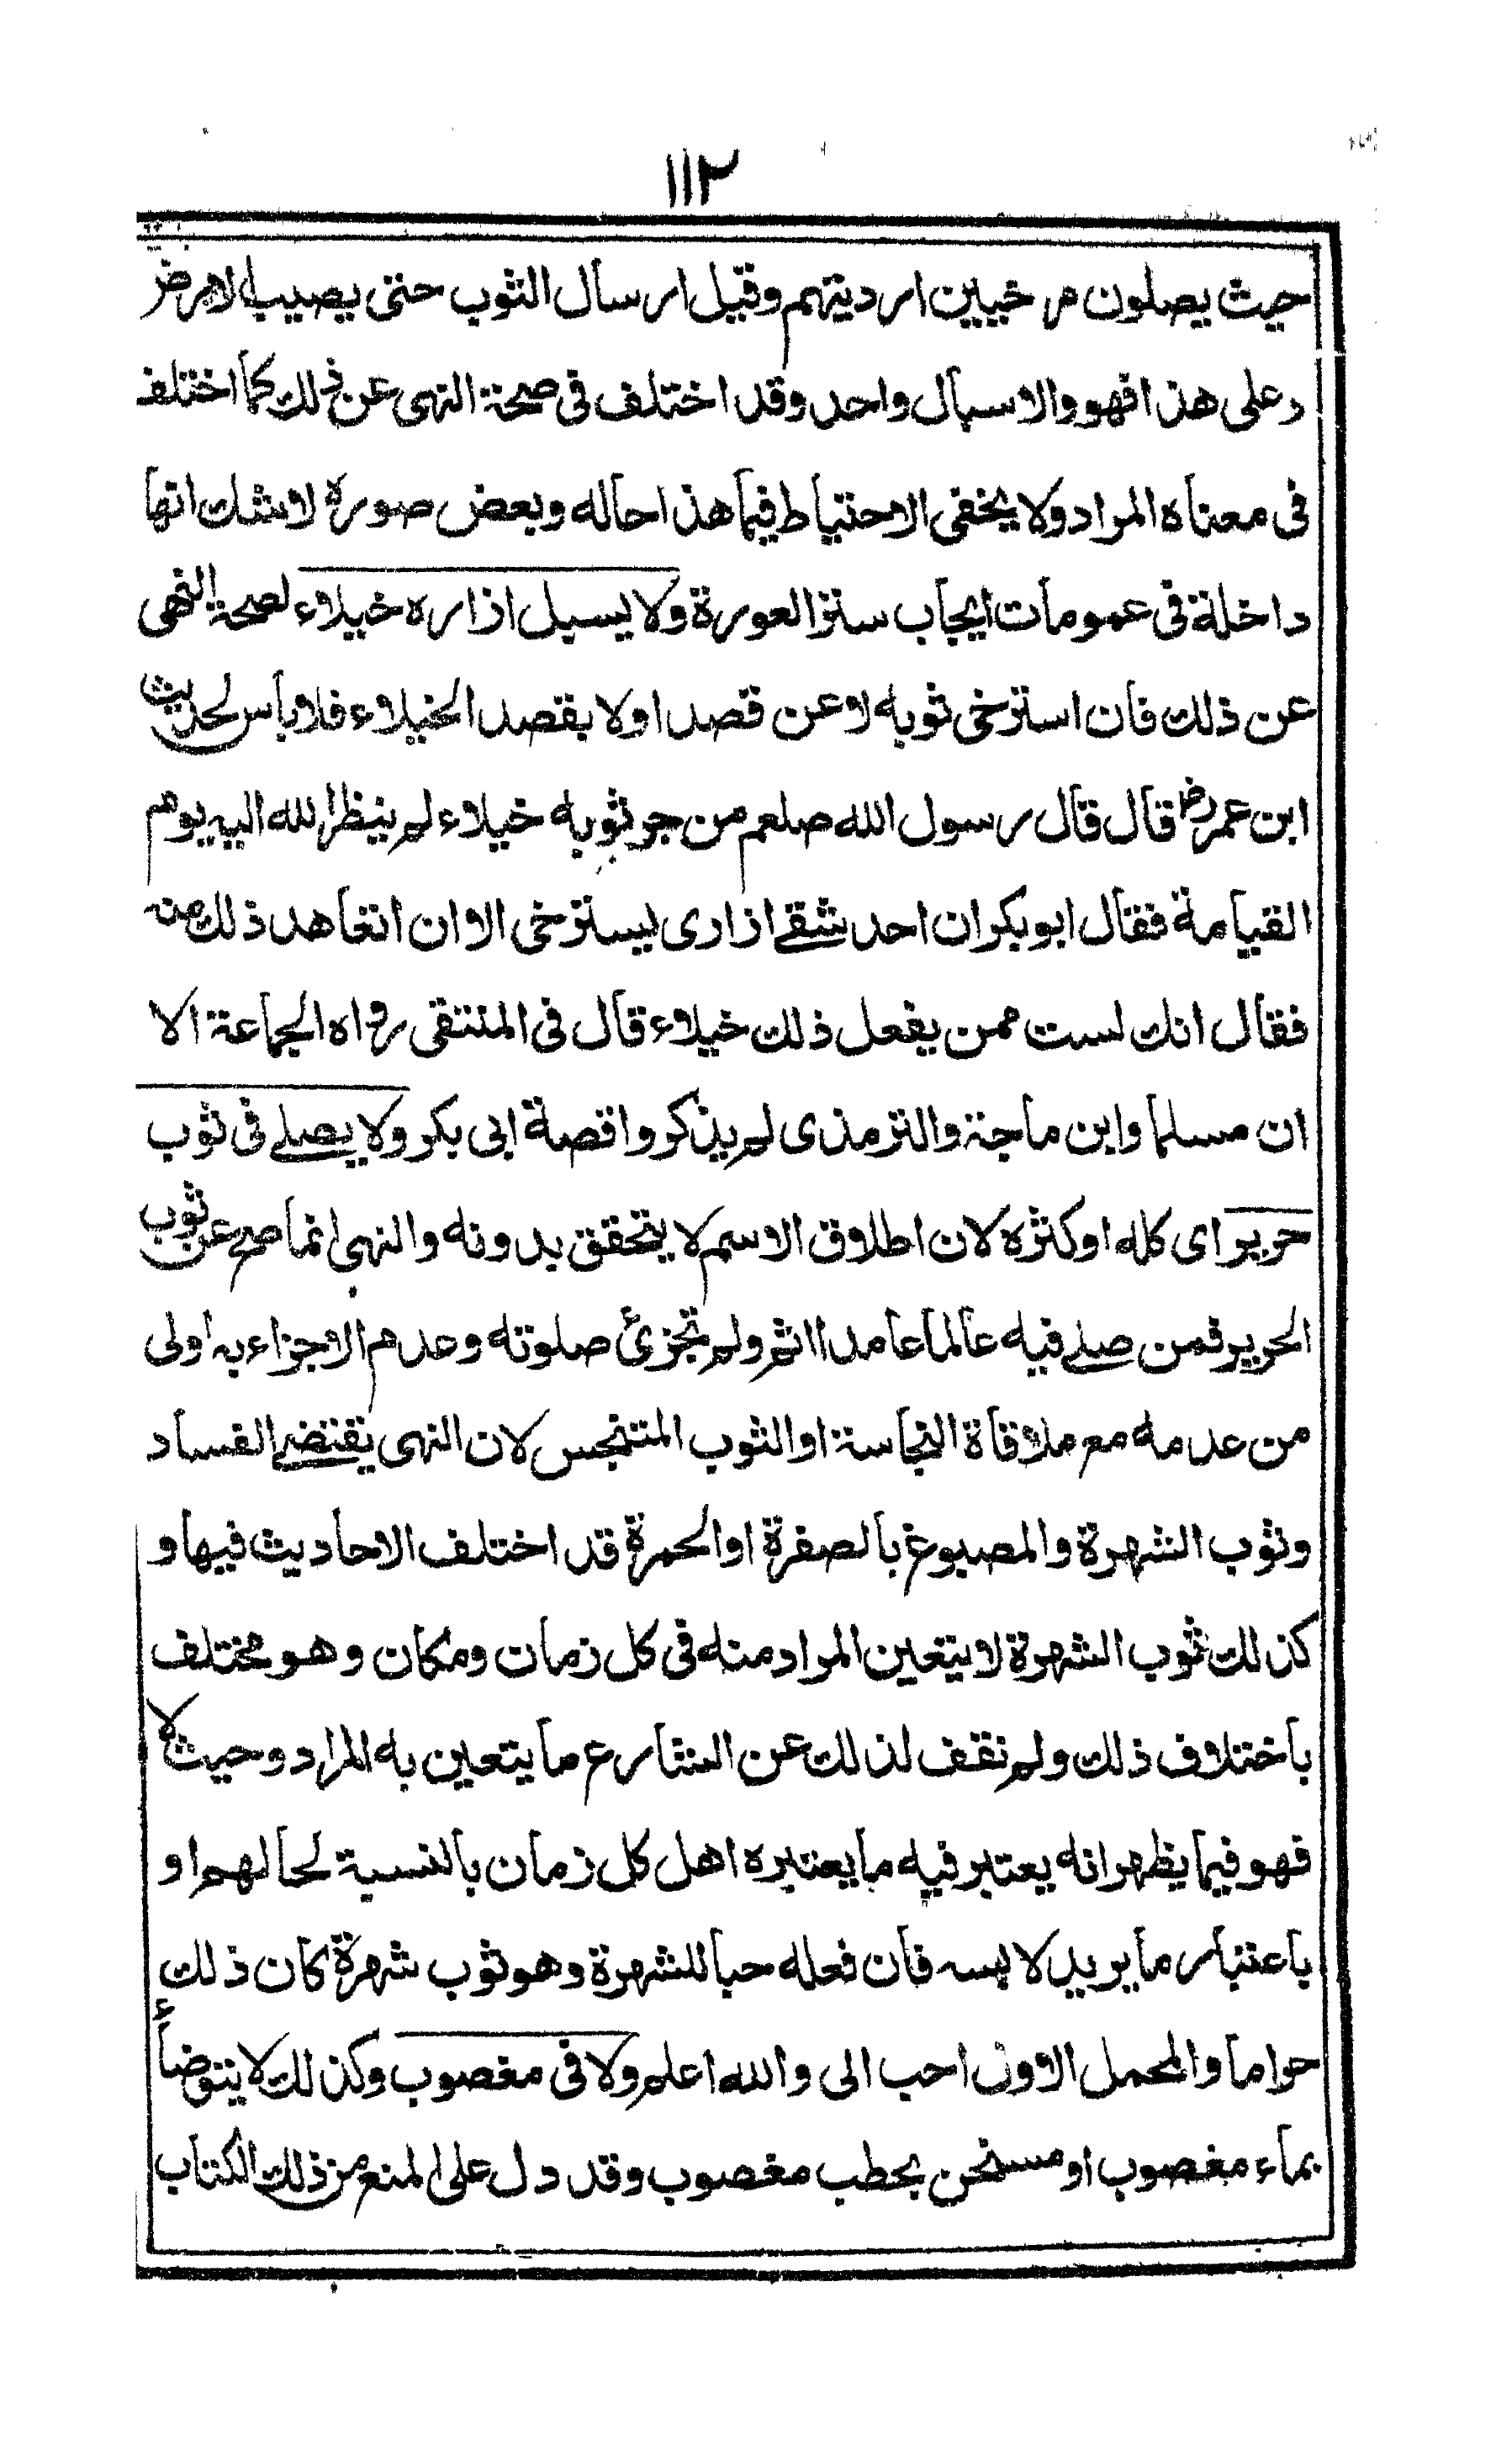 ١١٢
حيث يصلون مرخيين ارديتهم وقيل ارسال الثوب حتى يصيب الارض
وعلى هذا فهو والاسبال واحد وقد اختلف فى صحة النهى عن ذلك كما اختلف
فى معناه المراد ولا يخفى الاحتياط فيما هذا حاله وبعض صورة لاشك انها
داخلة فى عمومات ايجاب ستر العورة ولا يسبل ازاره خيلاء لصحة النهى
عن ذلك فان استرخى ثوبه لا عن قصد او لا بقصد الخيلاء فلا بأس لحديث
ابن عمر رض قال قال رسول الله صلعم من جر ثوبه خيلاء لم ينظر الله اليه يوم
القيامة فقال ابو بكر ان احد شقے ازارى يسترخى الا ان اتعاهد ذلك منه
فقال انك لست ممن يفعل ذلك خيلاء قال فى المنتقى رواه الجماعة الا
ان مسلما وابن ماجة والترمذى لم يذكروا قصة ابى بكر ولا يصلے فى ثوب
حرير اى كله او كثره لان اطلاق الاسم لا يتحقق بدونه والنهى انما صح عن ثوب
الحرير فمن صلے فيه عالما عامدا اثم ولم تجزئ صلوته وعدم الاجزاء به اولى
من عدمه مع ملاقاة النجاسة او الثوب المتنجس لان النهى يقتضے الفساد
وثوب الشهرة والمصبوغ بالصفرة او الحمرة قد اختلف الاحاديث فيها و
كذلك ثوب الشهرة لا يتعين المراد منه فى كل زمان ومكان وهو مختلف
باختلاف ذلك ولم نقف لذلك عن الشارع ما يتعين به المراد وحيث لا
فهو فيما يظهر انه يعتبر فيه ما يعتبره اهل كل زمان بالنسبة لحالهم او
باعتبار ما يريد لابسه فان فعله حبا للشهرة وهو ثوب شهرة كان ذلك
حراما والمحمل الاول احب الى والله اعلم ولا فى مغصوب وكذلك لا يتوضأ
بماء مغصوب او مسخن بحطب مغصوب وقد دل على المنع من ذلك الكتاب